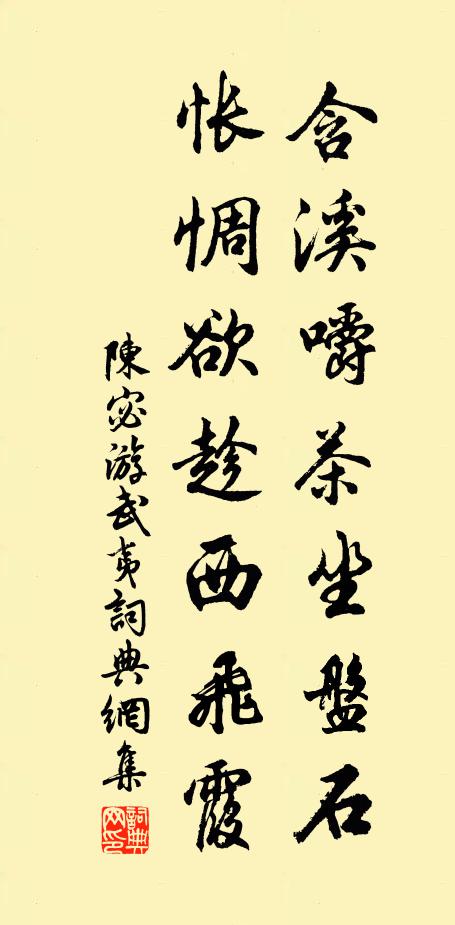 含溪嚼茶坐盤石
悵惆欲趁西飛霞
陳宓游武夷詞典網集
詞典網印